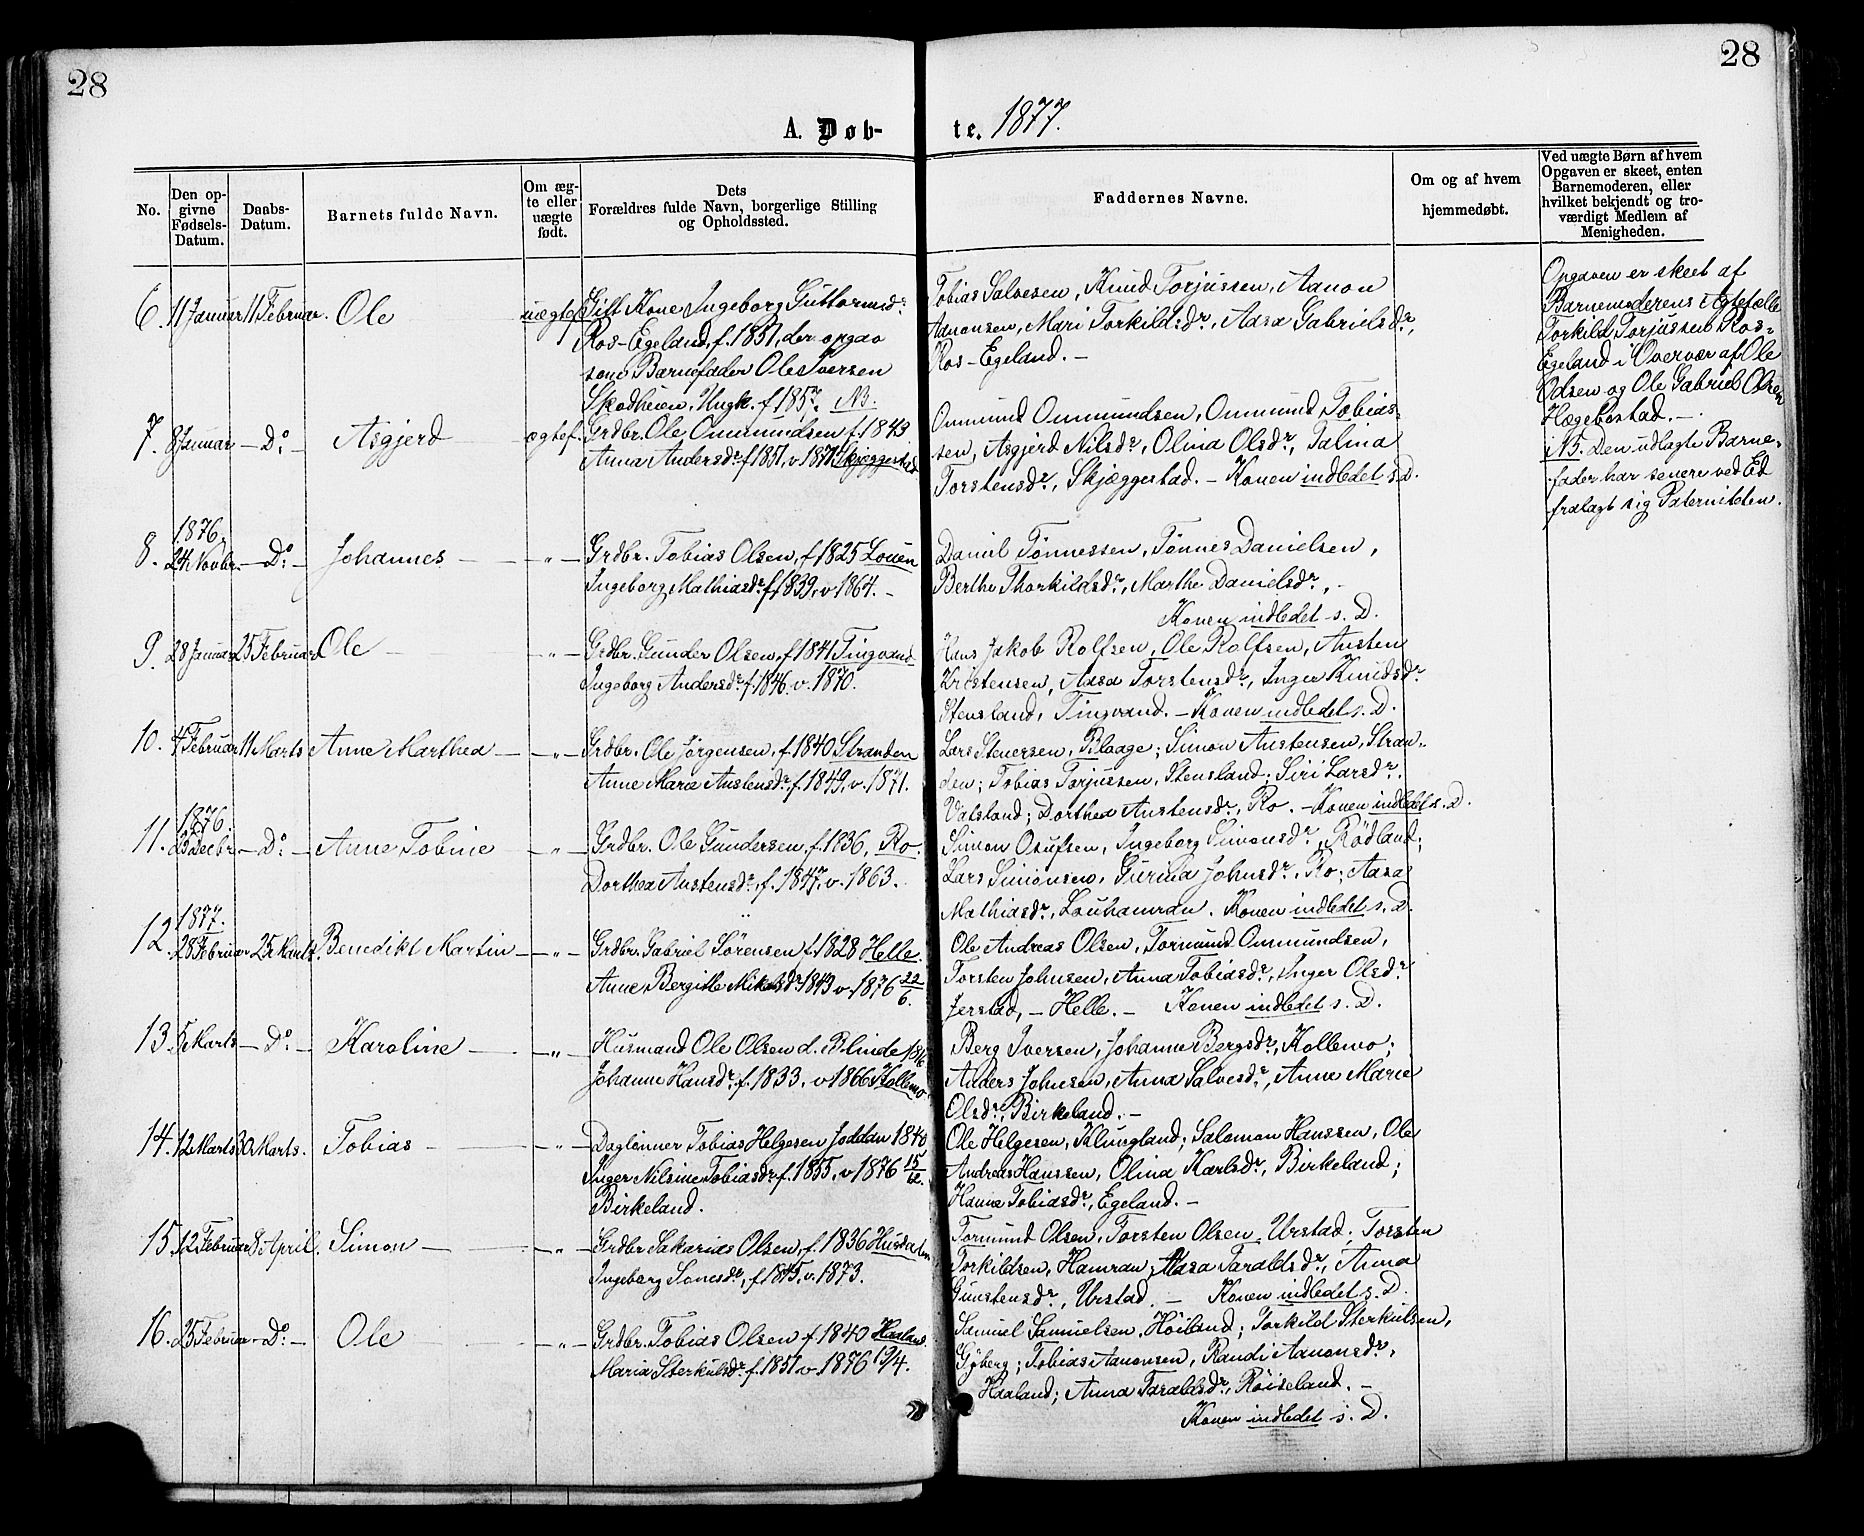 28
28
A. Døb-
te. 1877.
No.
Den op-
givne
Fødsels-
Datum.
Daabs-
Datum.
Barnets fulde Navn.
Om æg-
te eller
uægte
født.
Dets
Forældres fulde Navn, borgerlige Stilling
og Opholdssted.
Faddernes Navne.
Om og af hvem
hjemmedøbt.
Ved uægte Børn af hvem
Opgaven er skeet, enten
Barnemoderen, eller
hvilket bekjendt og tro-
værdigt Medlem af
Menigheden.
6. 11 Januar 11 Februar. Ole uægtef. Gift Kone Ingeborg Guttormsdr.
Ros-Egeland, f. 1851, der opgav
som Barnefader Ole Iversen
Skodheien, Ungk. f. 1857. NB.
Tobias Salvesen, Knud Torjussen, Aanon
Aanonsen, Mari Torkildsdr, Aasa Gabrielsdr,
Ros-Egeland. -
Opgaven er skeet af
Barnemoderens Ægtefælle
Torkild Torjussen Ros-
Egeland i Overvær af Ole
Odsen og Ole Gabriel Olsen
Hægebostad. -
NB. Den udlagte Barne-
fader har senere ved Ed
fralagt sig Paterniteten.
7. 8 Januar - Do - Asgjerd ægtef. Grdbr. Ole Ommundsen f. 1849
Anna Andersdr f. 1851, v. 1871 Skjeggestad
Ommund Ommundsen, Ommund Tobias-
sen, Asgjerd Nilsdr, Olina Olsdr, Talina
Torstensdr, Skjæggestad. - Konen indledet s. D.
1876.
8. 24 Novbr. - Do - Johannes - " - Grdbr. Tobias Olsen, f. 1825 Louen
Ingeborg Mathiasdr f. 1839, v. 1864. -
Daniel Tønnessen, Tønnes Danielsen,
Berthe Thorkildsdr, Marthe Danielsdr, -
Konen indledet s. D.
9. 28 Januar 25 Februar Ole - " - Grdbr. Gunder Olsen, f. 1841 Tingvand
Ingeborg Andersdr f. 1846. v. 1870.
Hans Jakob Rolfsen, Ole Rolfsen, Austen
Kristensen, Aasa Torstensdr, Inger Knudsdr
Stensland, Tingvand. - Konen indledet s. D.
10. 4 Februar 11 Marts Anne Marthea - " - Grdbr. Ole Jørgensen, f. 1840 Stranden
Anne Marie Austensdr, f. 1849, v. 1871.
Lars Steversen, Blaage; Simon Austensen, Stran-
den; Tobias Torjussen, Stensland; Siri Larsdr.
Vatsland; Dorthea Austensdr, Ro. - Konen indledet s. D.
1876.
11. 25 Decbr. - Do - Anne Tobine - " - Grdbr. Ole Gundersen, f. 1836, Ro.
Dorthea Austensdr, f. 1847, v. 1863.
Simon Osufsen, Ingeborg Simonsdr, Rødland;
Lars Simonsen, Gurina Johnsdr, Ro; Aasa
Mathiasdr, Louhamran. Konen indledet s. D.
1877.
12. 28 Februar 25 Marts. Benedikt Martin - " - Grdbr. Gabriel Sørensen f. 1828 Helle.
Anne Bergitte Mikelsdr 1843 v. 1876 22/6.
Ole Andreas Olsen, Tormund Ommundsen,
Torsten Johnsen, Anna Tobiasdr, Inger Olsdr
Jerstad, - Helle. - Konen indledet s. D.
13. 5 Marts - Do - Karoline - " - Husmand Ole Olsen d. Blinde 1816
Johanne Hansdr. f. 1833. v. 1866 Kollemo.
Berg Iversen, Johanne Bergsdr, Kollemo;
Anders Johnsen, Anna Salvesdr, Anne Marie
Olsdr, Birkeland. -
14. 12 Marts 30 Marts. Tobias - " - Daglønner Tobias Helgesen Joddan 1840
Inger Nilsine Tobiasdr f. 1855, v. 1876 15/12.
Birkeland.
Ole Helgesen, Klungland; Salomon Hanssen, Ole
Andreas Hanssen, Olina Karlsdr, Birkeland;
Hanna Tobiasdr, Egeland. -
15. 12 Februar 8 April. Simon - " - Grdbr Sakarias Olsen, f. 1836 Husdalen
Ingeborg Sonesdr, f. 1845, v. 1873.
Tormund Olsen, Torsten Olsen Urstad; Torsten
Torkildsen, Hamran; Aasa Taraldsdr, Anna
Gunstensdr, Urstad. - Konen indledet s. D.
16. 25 Februar - Do - Ole - " - Grdbr. Tobias Olsen f. 1840 Haaland
Maria Sterkulsdr f. 1851 v. 1876 19/4.
Samuel Samuelsen, Høiland; Torkild Sterkulsen,
Gyberg; Tobias Aanonsen, Randi Aanonsdr,
Haaland; Anna Taraldsdr, Røiseland. -
Konen indledet s. D.